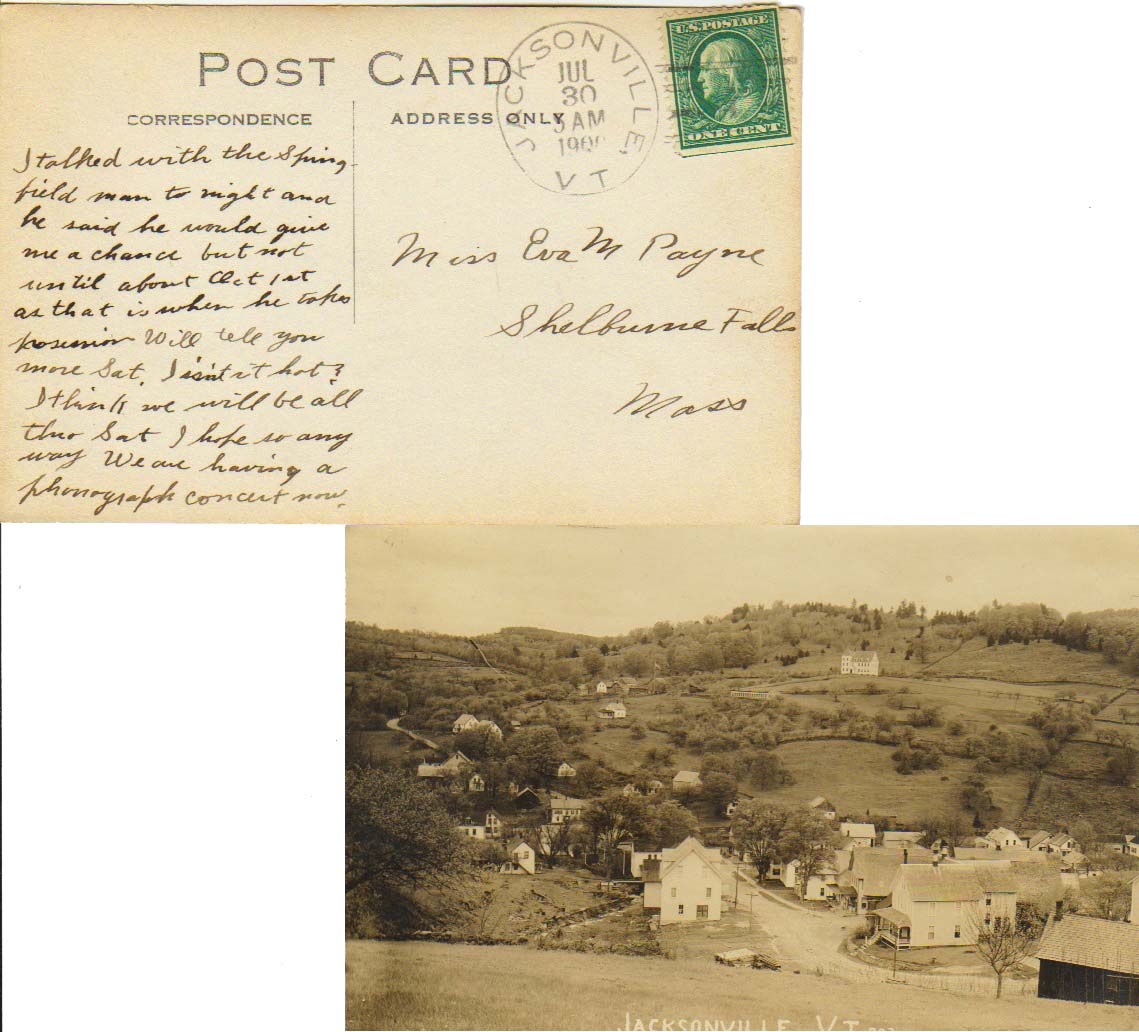 POST CARD
CORRESPONDENCE
ADDRESS ONLY
JACKSONVILLE
JUL
30
AM
VT
U.S. POSTAGE
ONE CENT
I talked with the Spring
field man to night and
he said he would give
me a chance but not
until about Oct 1st
as that is when he takes
Will tell you
more Sat. Isnt it hot?
I think we will be all
thro Sat I hope so any
way We are having a
phonograph concert now.
Miss Eva M Payne
Shelburne Falls
Mass
JACKSONVILLE VT